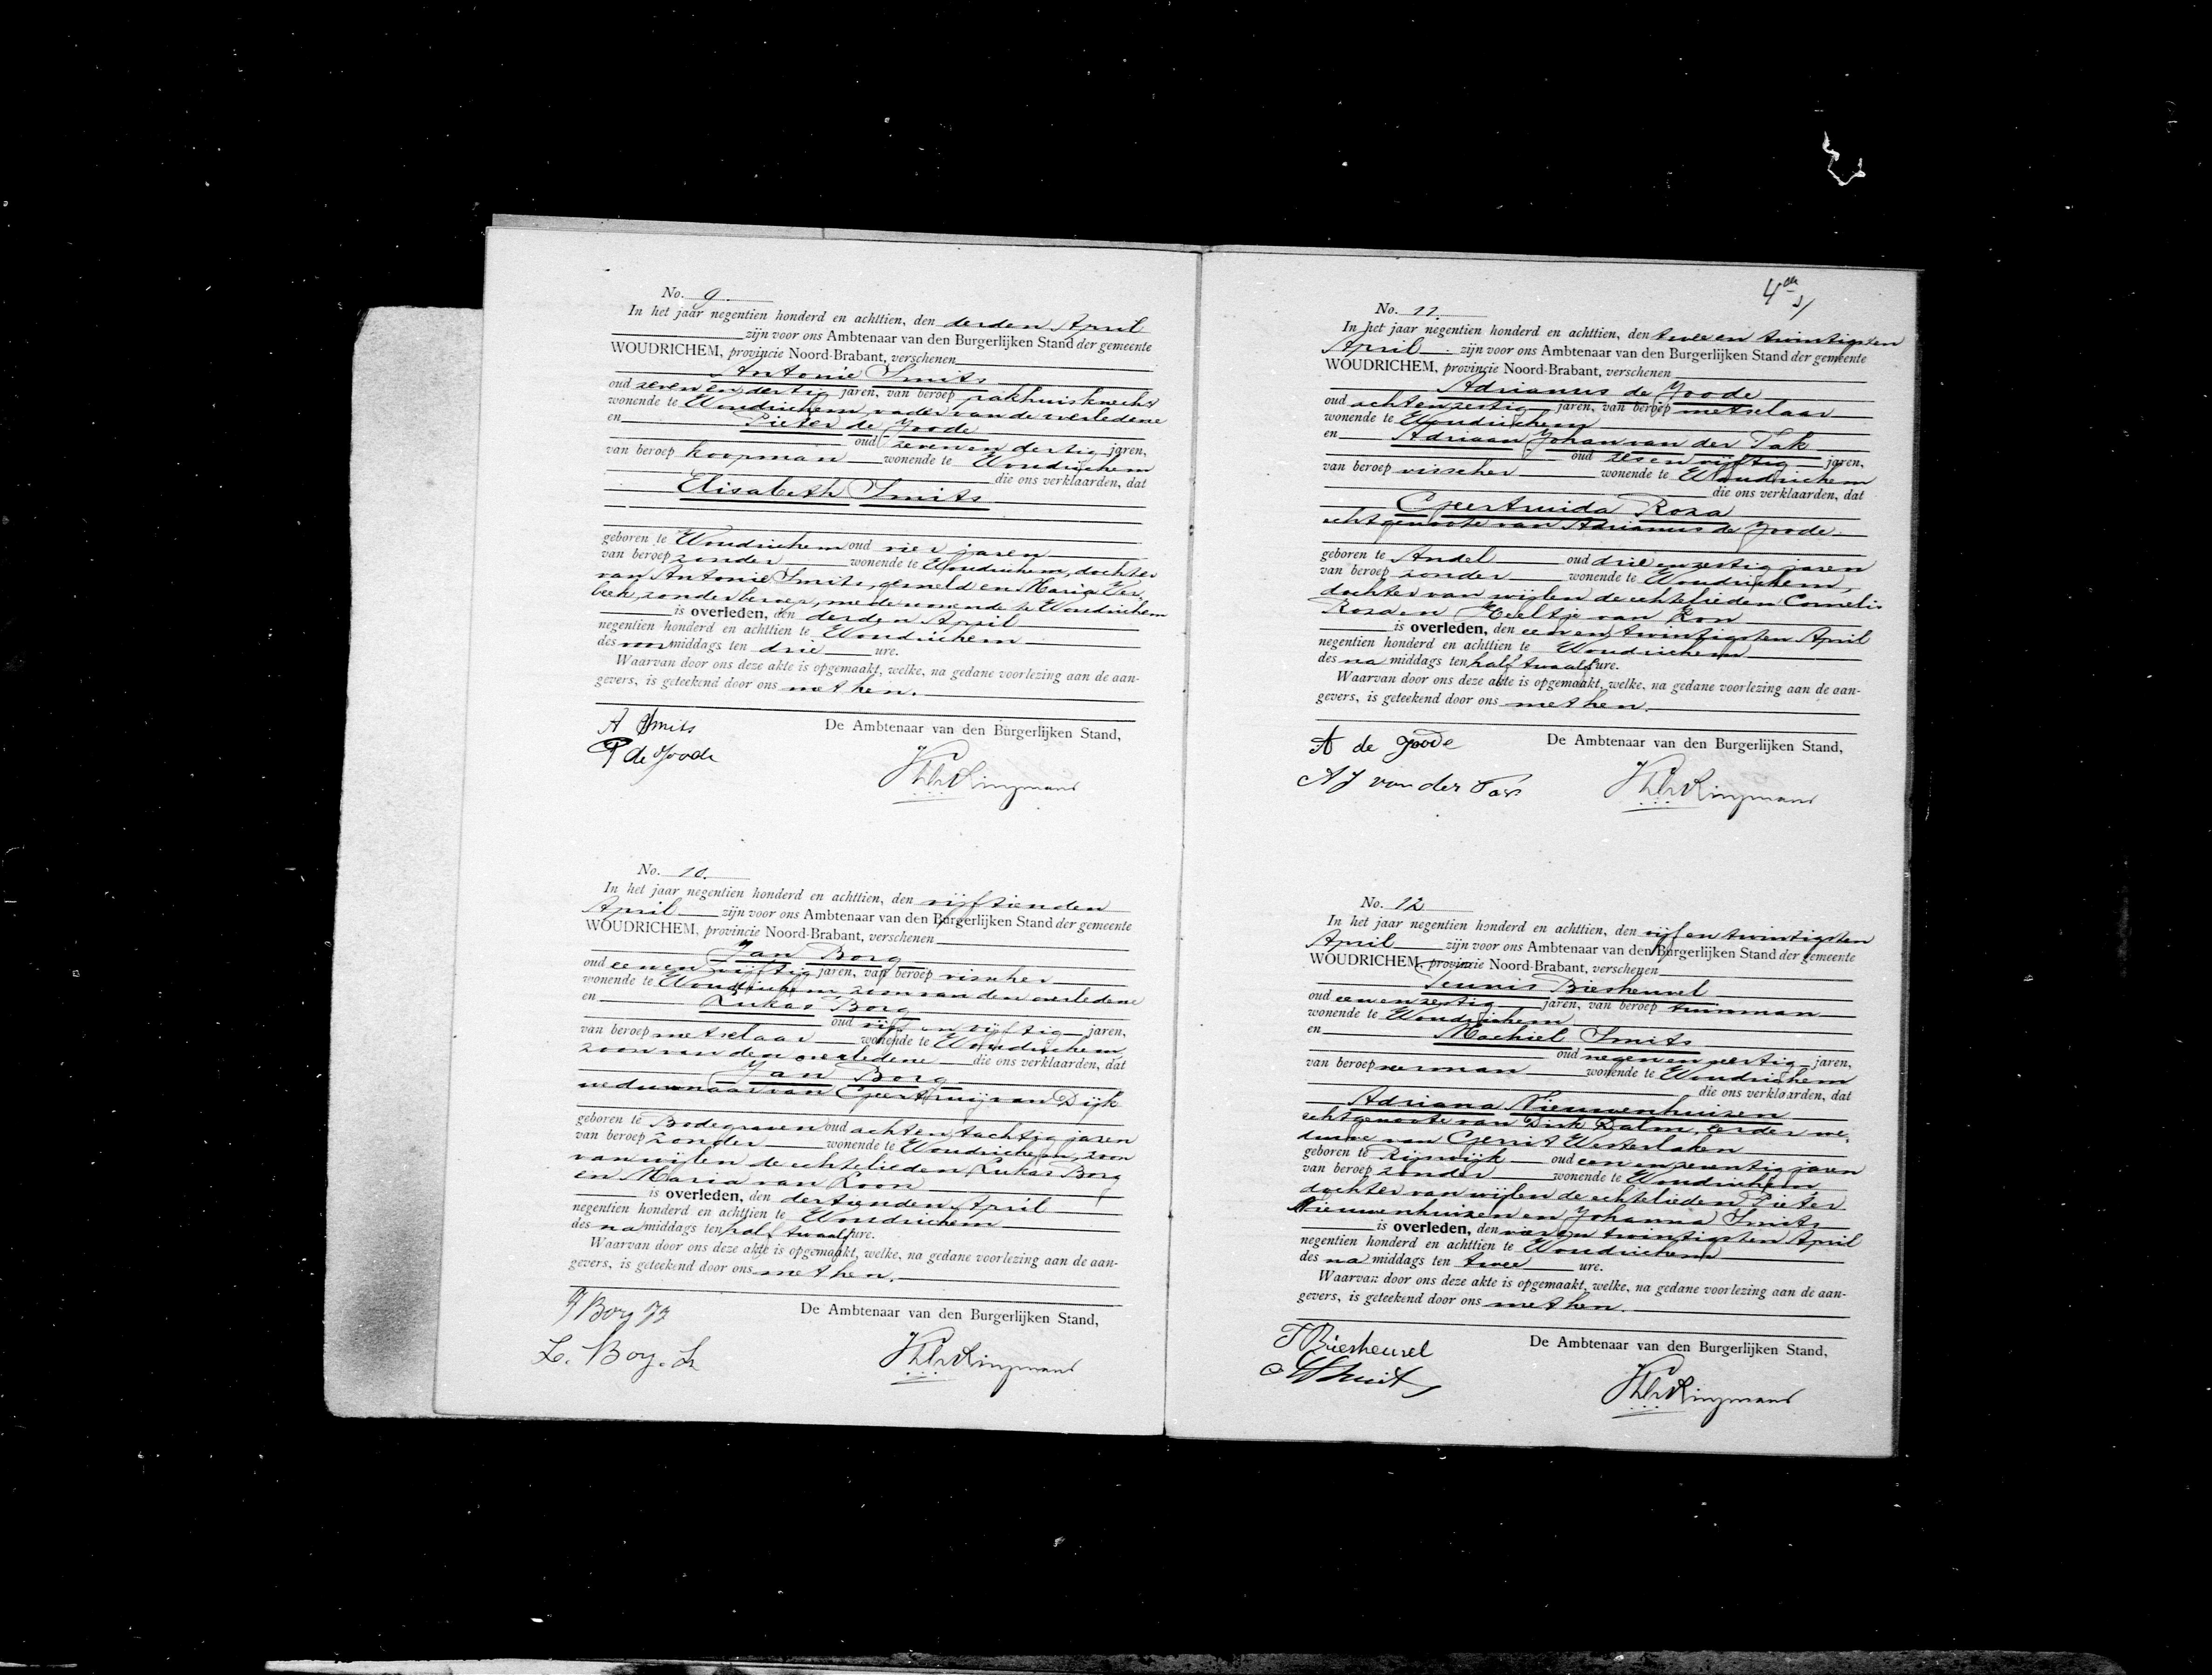 No. 9.
In het jaar negentien honderd en achttien, den derden April
zijn voor ons Ambtenaar van den Burgerlijken Stand der gemeente
WOUDRICHEM, provincie Noord-Brabant, verschenen
Antonie Smits
oud zeven en dertig jaren, van beroep pakhuisknecht
wonende te Woudrichem, vader van de overledene
en Pieter de Joode
oud zeven en dertig jaren,
van beroep koopman wonende te Woudrichem
die ons verklaarden, dat
Elisabeth Smits
geboren te Woudrichem oud vier jaren
van beroep zonder wonende te Woudrichem, dochter
van Antonie Smits, gemeld en Maria Ver-
beek, zonder beroep, mede wonende te Woudrichem
is overleden, den derden April
negentien honderd en achttien te Woudrichem
des voormiddags ten drie ure.
Waarvan door ons deze akte is opgemaakt, welke, na gedane voorlezing aan de aan-
gevers, is geteekend door ons met hen.
A Smits
De Ambtenaar van den Burgerlijken Stand,
P de Joode
No. 10.
In het jaar negentien honderd en achttien, den vijftienden
April zijn voor ons Ambtenaar van den Burgerlijken Stand der gemeente
WOUDRICHEM, provincie Noord-Brabant, verschenen
Jan Borg
oud een en vijftig jaren, van beroep visscher
wonende te Woudrichem zoon van den overledene
en Lukas Borg
oud vijf en vijftig jaren,
van beroep metselaar wonende te Woudrichem,
zoon van den overledene die ons verklaarden, dat
Jan Borg
weduwnaar van Geertruij van Dijk
geboren te Bodegraven oud acht en tachtig jaren
van beroep zonder wonende te Woudrichem, zoon
van wijlen de echtelieden Lukas Borg
en Maria van Loon
is overleden, den dertienden April
negentien honderd en achttien te Woudrichem
des namiddags ten half twaalf ure.
Waarvan door ons deze akte is opgemaakt, welke, na gedane voorlezing aan de aan-
gevers, is geteekend door ons met hen.
J Borg Jz
De Ambtenaar van den Burgerlijken Stand,
L. Borg.
4de
No. 11.
In het jaar negentien honderd en achttien, den twee en twintigsten
April zijn voor ons Ambtenaar van den Burgerlijken Stand der gemeente
WOUDRICHEM, provincie Noord-Brabant, verschenen
Adrianus de Joode
oud acht en zestig jaren, van beroep metselaar
wonende te Woudrichem
en Adriaan Johan van der Tak
oud zes en vijftig jaren,
van beroep visscher wonende te Woudrichem
die ons verklaarden, dat
Geertruida Roza
echtgenoote van Adrianus de Joode
geboren te Andel oud drie en zestig jaren
van beroep zonder wonende te Woudrichem,
dochter van wijlen de echtelieden Cornelis
Roza en Neeltje van Ron
is overleden, den een en twintigsten April
negentien honderd en achttien te Woudrichem
des na middags ten half twaalf ure.
Waarvan door ons deze akte is opgemaakt, welke, na gedane voorlezing aan de aan-
gevers, is geteekend door ons met hen.
A de Joode
De Ambtenaar van den Burgerlijken Stand,
A J van der Tak
No. 12
In het jaar negentien honderd en achttien, den vijf en twintigsten
April zijn voor ons Ambtenaar van den Burgerlijken Stand der gemeente
WOUDRICHEM, provincie Noord-Brabant, verschenen
Teunis Biesheuvel
oud een en zestig jaren, van beroep tuinman
wonende te Woudrichem
en Machiel Smits
oud negen en veertig jaren,
van beroep veerman wonende te Woudrichem
die ons verklaarden, dat
Adriana Nieuwenhuizen
echtgenoote van Dirk Dalm, eerder we-
duwe van Gerrit Westerlaken
geboren te Rijswijk oud een en zeventig jaren
van beroep zonder wonende te Woudrichem
dochter van wijlen de echtelieden Pieter
Nieuwenhuizen en Johanna Smits
is overleden, den vier en twintigsten April
negentien honderd en achttien te Woudrichem
des na middags ten twee ure.
Waarvan door ons deze akte is opgemaakt, welke, na gedane voorlezing aan de aan-
gevers, is geteekend door ons met hen.
T Biesheuvel
De Ambtenaar van den Burgerlijken Stand,
M Smits